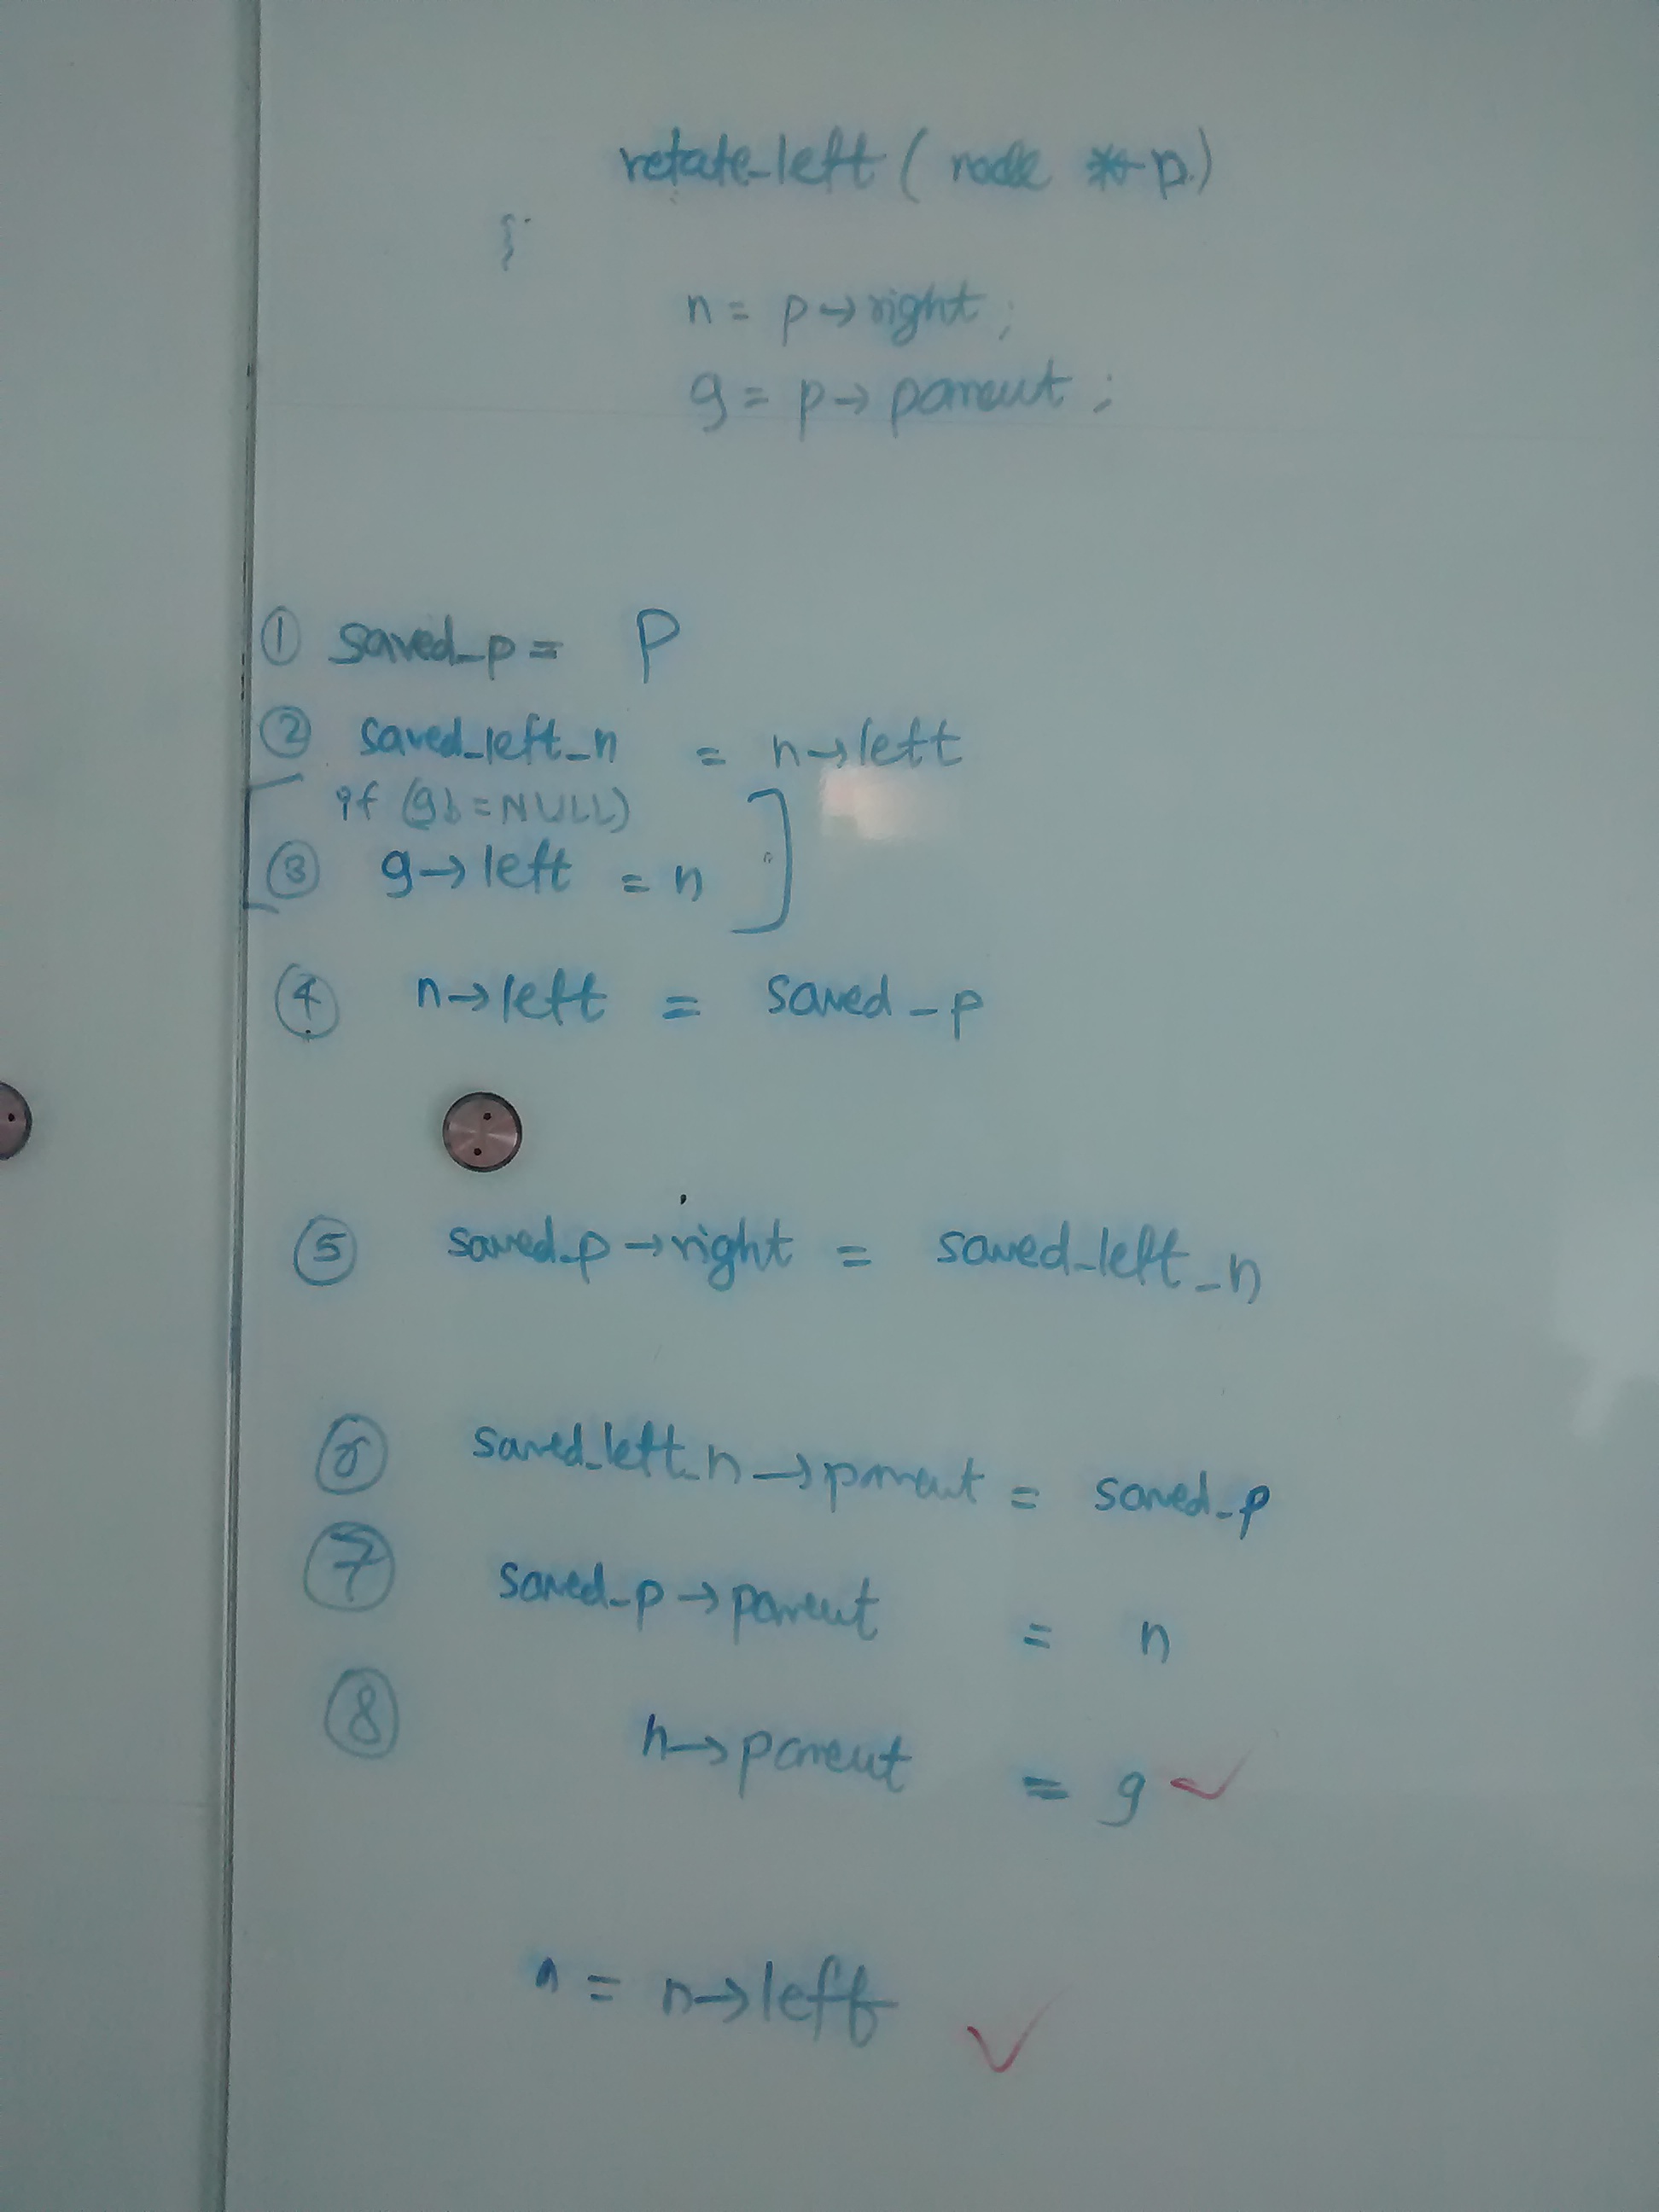 rotate_left ( node * p )
{
n = p→right ;
g = p→parent ;
① saved_p = P
② saved_left_n = n→left
if (g != NULL)
③ g→left = n
④ n→left = saved_p
⑤ saved_p→right = saved_left_n
⑥ saved_left_n→parent = saved_p
⑦ saved_p→parent = n
⑧ n→parent = g ✓
n = n→left ✓